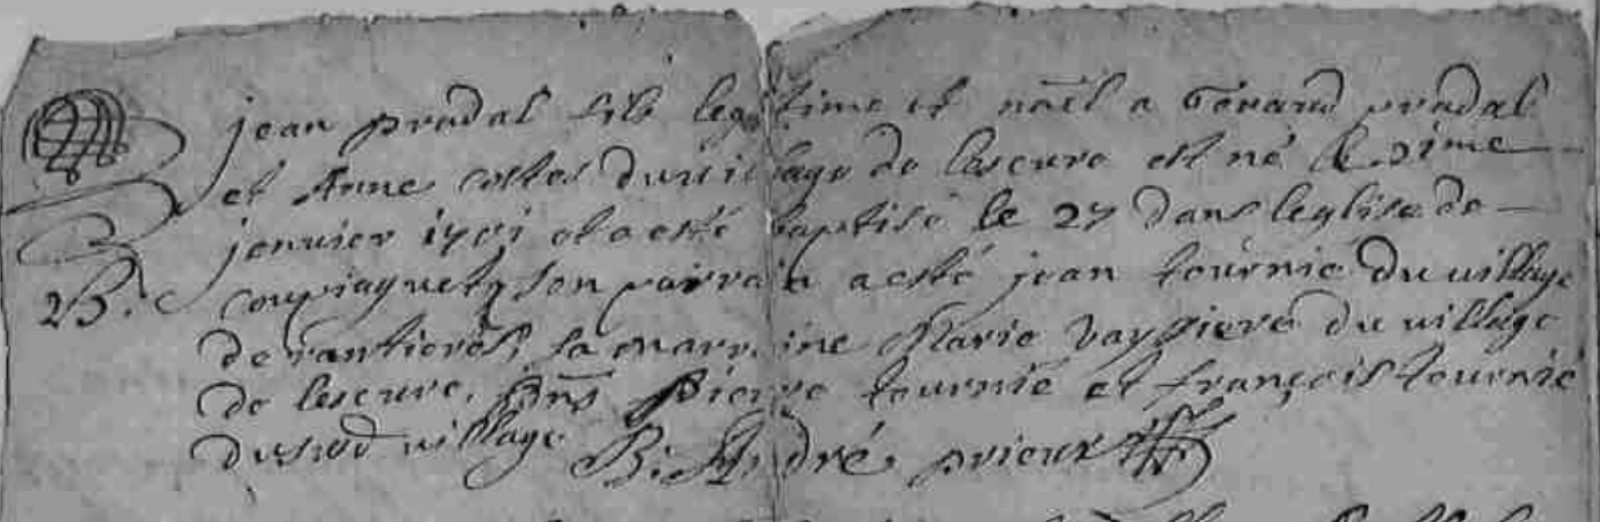 jean pradal fils legitime et nãel a Gerard pradal
et Anne costes du village de lescure est né le
janvier 1701 et a esté baptisé le 27 dans leglise de
B. coupiaguet son pairrain a esté jean tournié du village
de vantieres, sa marraine Marie Vayssiere du village
de lescure, pñs Pierre tournié et françois tournié
dusud village B. André prieur